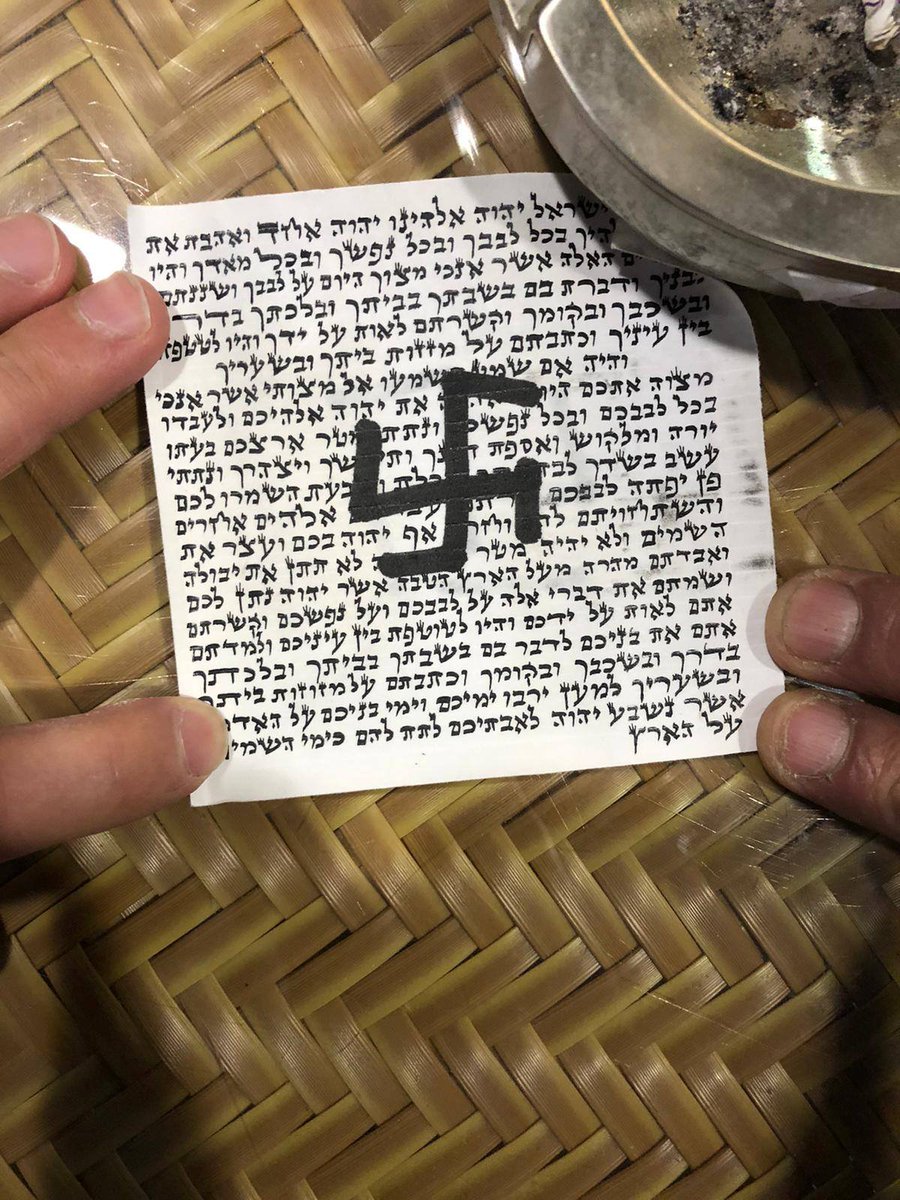 ישראל יהוה אלהינו יהוה אחד ואהבת את
בכל לבבך ובכל נפשך ובכל מאדך והיו
האלה אשר אנכי מצוך היום על לבבך ושננתם
לבניך ודברת בם בשבתך בביתך ובלכתך
ובשכבך ובקומך וקשרתם לאות על ידך והיו לטטפת
בין עיניך וכתבתם על מזזות ביתך ובשעריך
והיה אם תשמעו אל מצותי אשר אנכי
מצוה אתכם את יהוה אלהיכם ולעבדו
בכל לבבכם ובכל מטר ארצכם בעתו
יורה ומלקוש ואספת ויצהרך ונתתי
עשב בשדך השמרו לכם
פן יפתה לבבכם אלהים אחרים
והשתחויתם אף יהוה בכם ועצר את
השמים ולא יהיה מטר לא תתן את יבולה
ואבדתם מהרה מעל הארץ הטבה אשר יהוה נתן לכם
ושמתם את דברי אלה על לבבכם ועל נפשכם וקשרתם
אתם לאות על ידכם והיו לטוטפת בין עיניכם ולמדתם
אתם את בניכם לדבר בם בשבתך בביתך ובלכתך
בדרך ובשכבך ובקומך וכתבתם על מזוזות
ובשעריך למען ירבו ימיכם וימי בניכם על
אשר נשבע יהוה לאבתיכם לתת להם כימי
על הארץ